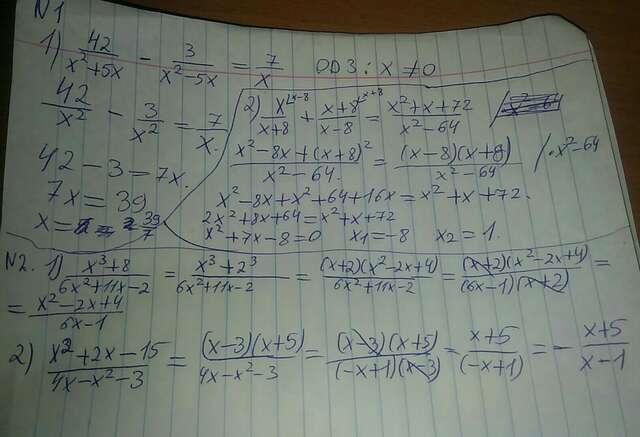 N1
1) 42/(x²+5x) - 3/(x²-5x) = 7/x ОДЗ: x ≠ 0
42/x² - 3/x² = 7/x.
42 - 3 = 7x.
7x = 39
x = 39/7
2) x^(x-8)/(x+8) + (x+8)^(x+8)/(x-8) = (x²+x+72)/(x²-64)
(x²-8x+(x+8)²)/(x²-64.) = (x-8)(x+8)/(x²-64) /·x²-64
x²-8x+x²+64+16x = x²+x+72.
2x²+8x+64 = x²+x+72
x²+7x-8=0 x₁=-8 x₂=1.
N2. 1) (x³+8)/(6x²+11x-2) = (x³+2³)/(6x²+11x-2) = (x+2)(x²-2x+4)/(6x²+11x-2) = (x+2)(x²-2x+4)/((6x-1)(x+2)) =
= (x²-2x+4)/(6x-1)
2) (x²+2x-15)/(4x-x²-3) = (x-3)(x+5)/(4x-x²-3) = (x-3)(x+5)/((-x+1)(x-3)) = (x+5)/(-x+1) = - (x+5)/(x-1)